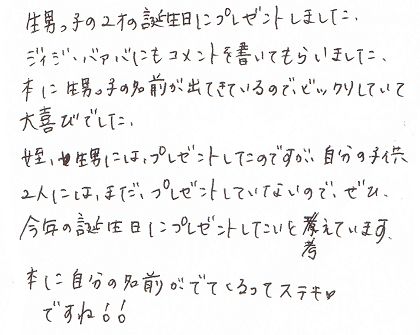 甥っ子の2才の誕生日にプレゼントしました。
ジィジ、バァバにもコメントを書いてもらいました。
本に甥っ子の名前が出てきているので、ビックリしていて
大喜びでした。
姪、甥には、プレゼントしたのですが、自分の子供
2人には、まだ、プレゼントしていないので、ぜひ、
今年の誕生日にプレゼントしたいと考えています。
本に自分の名前がでてくるってステキ♥
ですね!!